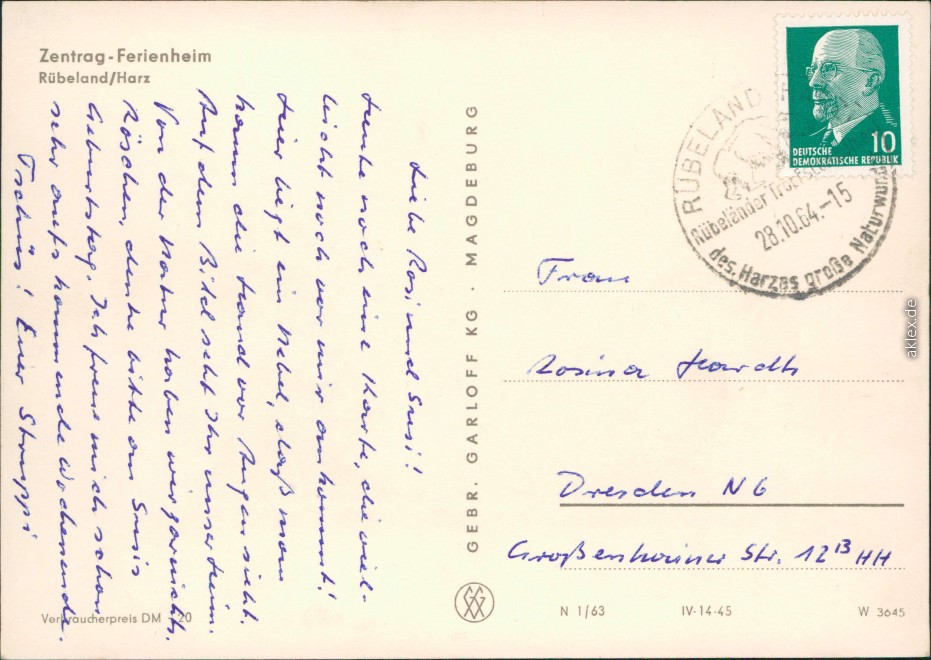 Zentrag-Ferienheim
Rübeland/Harz
Liebe Rosi und Susi!
Heute noch eine Karte, die viel-
leicht noch vor mir ankommt!
Hier liegt ein Nebel, daß man
kaum die Hand vor Augen sieht.
Auf dem Bild seht Ihr unser Heim.
Von der Natur haben wir garnichts.
Röschen, denke bitte an Susis
Geburtstag. Ich freue mich schon
sehr aufs kommende Wochenende.
Tschüs! Euer Struppi
Verbraucherpreis DM -,20
GEBR. GARLOFF KG · MAGDEBURG
DEUTSCHE
DEMOKRATISCHE REPUBLIK
10
RÜBELAND
Rübeländer
28.10.64.-15
des Harzes große Naturwunder
Frau
Rosina Hardt
Dresden N 6
Großenhainer Str. 12 13 HH
N 1/63
IV-14-45
W 3645
aklex.de